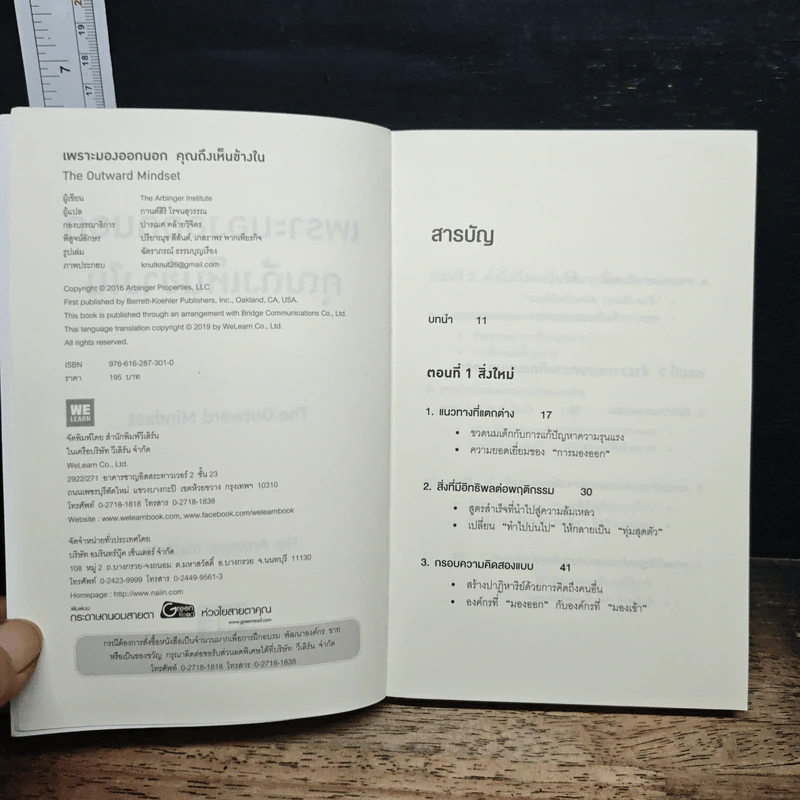 7
17
18
19
เพราะมองออกนอก คุณถึงเห็นข้างใน
The Outward Mindset
ผู้เขียน The Arbinger Institute
ผู้แปล กานต์สิริ โรจนสุวรรณ
กองบรรณาธิการ ปารเมศ คล้ายวิจิตร
พิสูจน์อักษร ปริยาณุช สีสันต์, เกสราพร พากเพียรกิจ
รูปเล่ม ฉัตราภรณ์ ธรรมบุญเรือง
ภาพประกอบ knutknut26@gmail.com
Copyright © 2016 Arbinger Properties, LLC
First published by Berrett-Koehler Publishers, Inc., Oakland, CA, USA.
This book is published through an arrangement with Bridge Communications Co., Ltd.
Thai language translation copyright © 2019 by WeLearn Co., Ltd.
All rights reserved.
ISBN 978-616-287-301-0
ราคา 195 บาท
WE
LEARN
จัดพิมพ์โดย สำนักพิมพ์วีเลิร์น
ในเครือบริษัท วีเลิร์น จำกัด
WeLearn Co., Ltd.
2922/271 อาคารชาญอิสสระทาวเวอร์ 2 ชั้น 23
ถนนเพชรบุรีตัดใหม่ แขวงบางกะปิ เขตห้วยขวาง กรุงเทพฯ 10310
โทรศัพท์ 0-2718-1818 โทรสาร 0-2718-1838
Website : www.welearnbook.com, www.facebook.com/welearnbook
จัดจำหน่ายทั่วประเทศโดย
บริษัท อมรินทร์บุ๊ค เซ็นเตอร์ จำกัด
108 หมู่ 2 ถ.บางกรวย-จงถนอม ต.มหาสวัสดิ์ อ.บางกรวย จ.นนทบุรี 11130
โทรศัพท์ 0-2423-9999 โทรสาร 0-2449-9561-3
Homepage : http://www.naiin.com
พิมพ์บน
กระดาษถนอมสายตา Green Read ห่วงใยสายตาคุณ
www.greenread.com
กรณีต้องการสั่งซื้อหนังสือเป็นจำนวนมากเพื่อการฝึกอบรม พัฒนาองค์กร ขาย
หรือเป็นของขวัญ กรุณาติดต่อขอรับส่วนลดพิเศษได้ที่บริษัท วีเลิร์น จำกัด
โทรศัพท์ 0-2718-1818 โทรสาร 0-2718-1838
สารบัญ
บทนำ 11
ตอนที่ 1 สิ่งใหม่
1. แนวทางที่แตกต่าง 17
• ขวดนมเด็กกับการแก้ปัญหาความรุนแรง
• ความยอดเยี่ยมของ "การมองออก"
2. สิ่งที่มีอิทธิพลต่อพฤติกรรม 30
• สูตรสำเร็จที่นำไปสู่ความล้มเหลว
• เปลี่ยน "ทำไปบ่นไป" ให้กลายเป็น "ทุ่มสุดตัว"
3. กรอบความคิดสองแบบ 41
• สร้างปาฏิหาริย์ด้วยการคิดถึงคนอื่น
• องค์กรที่ "มองออก" กับองค์กรที่ "มองเข้า"